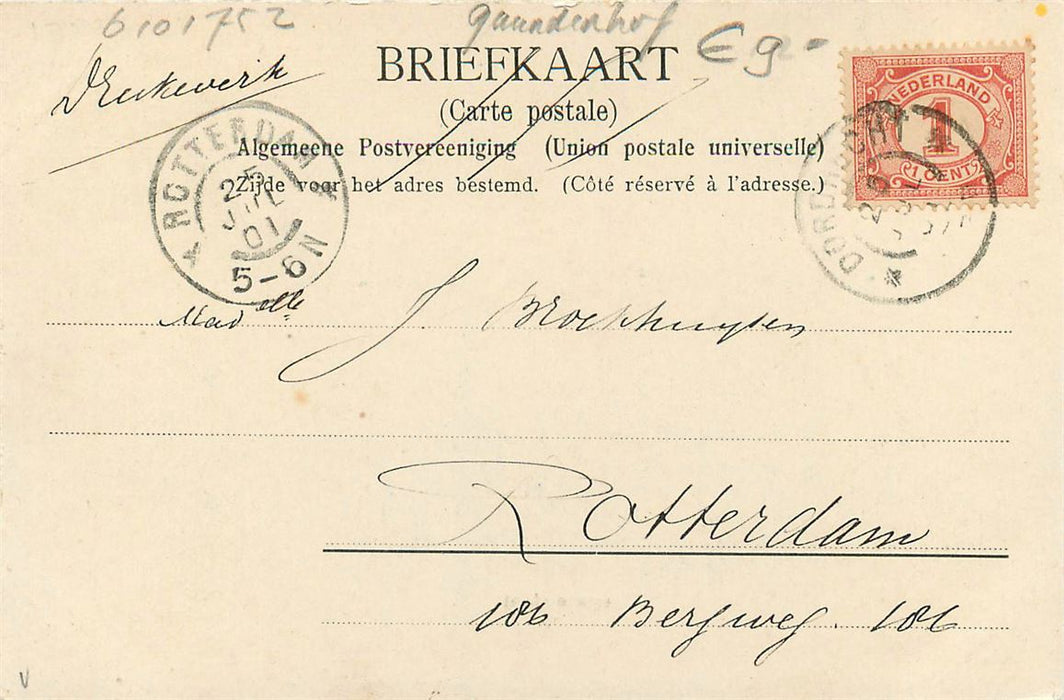 6101752
E 9-
Drukwerk
BRIEFKAART
(Carte postale)
Algemeene Postvereeniging (Union postale universelle)
Zijde voor het adres bestemd. (Côté réservé à l'adresse.)
NEDERLAND
1
1 CENT
ROTTERDAM
25
JUL
01
5-6N
DORDRECHT
Madelle J Broekhuysen
Rotterdam
106 Bergweg. 106
V